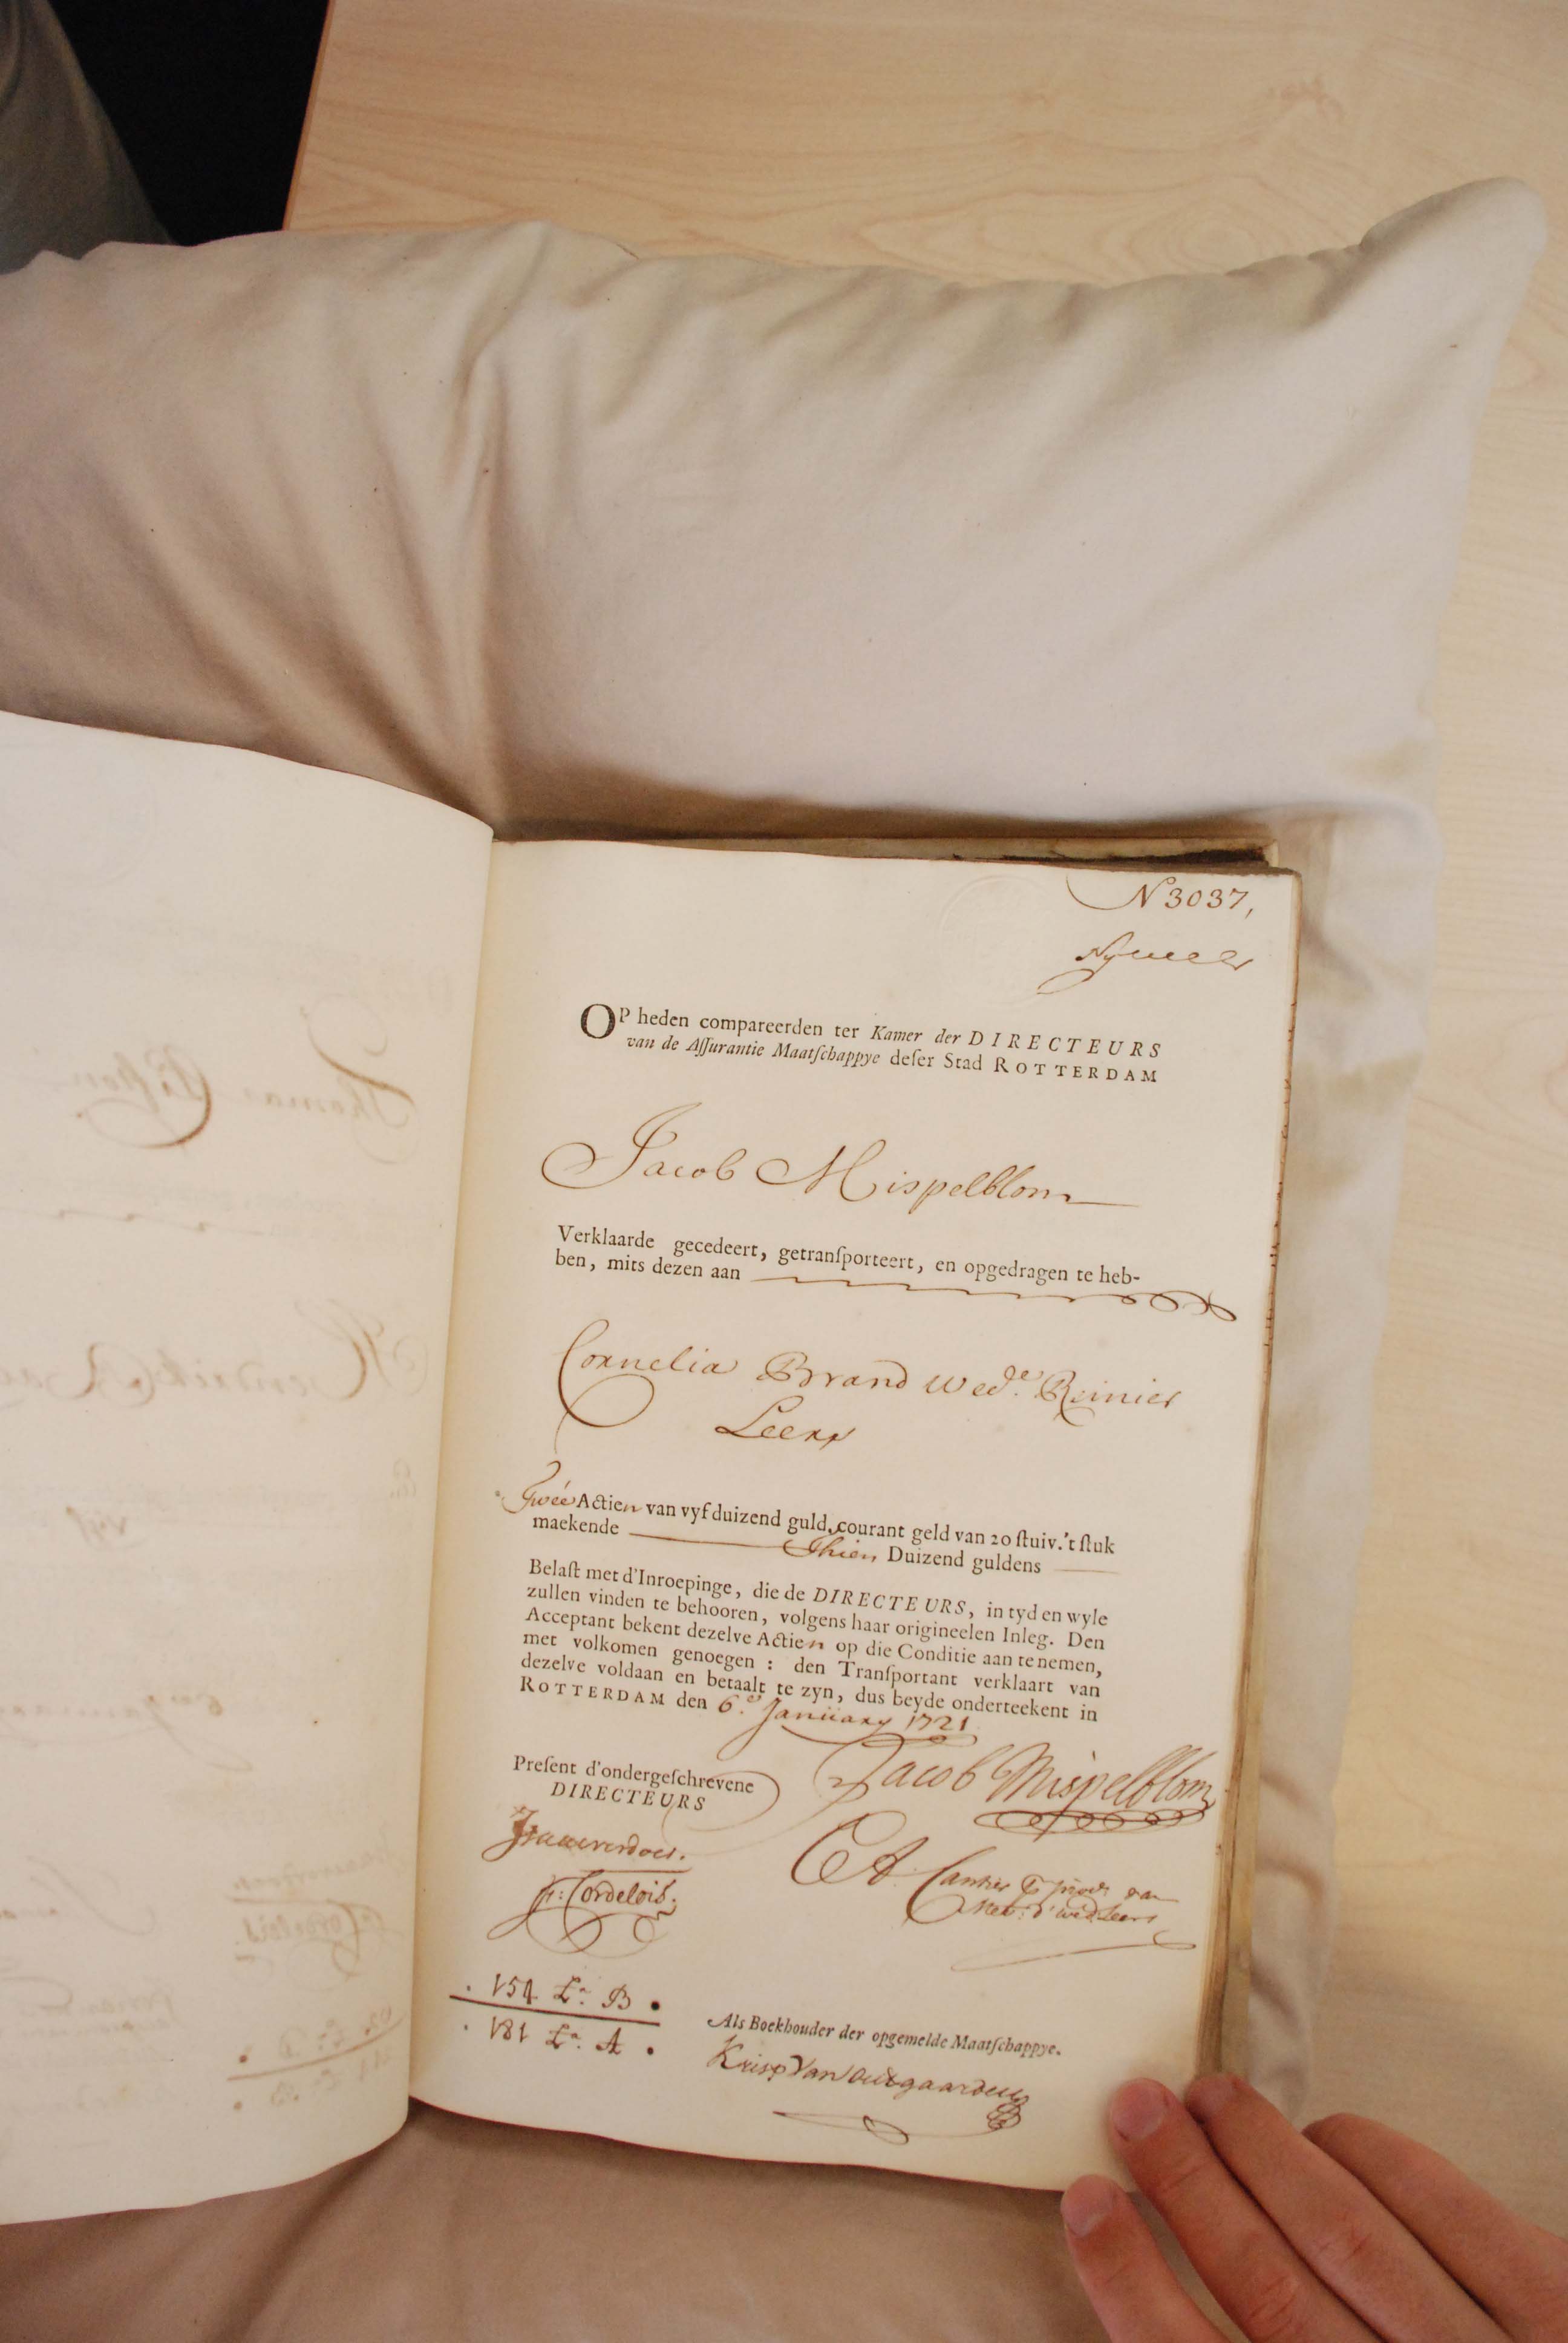 N 3037,
OP heden compareerden ter Kamer der DIRECTEURS
van de Aſſurantie Maatſchappye deſer Stad ROTTERDAM
Jacob Mispelblom
Verklaarde gecedeert, getranſporteert, en opgedragen te heb-
ben, mits dezen aan
Cornelia Brand Wedᵉ. Reinier
Leers
Twée Actien van vyf duizend guld. courant geld van 20 ſtuiv. 't ſtuk
maekende Thien Duizend guldens
Belaſt met d'Inroepinge, die de DIRECTEURS, in tyd en wyle
zullen vinden te behooren, volgens haar origineelen Inleg. Den
Acceptant bekent dezelve Actien op die Conditie aan te nemen,
met volkomen genoegen : den Tranſportant verklaart van
dezelve voldaan en betaalt te zyn, dus beyde onderteekent in
ROTTERDAM den 6.ᵉ January 1721
Preſent d'ondergeſchrevene
DIRECTEURS
Jacob Mispelblom
Cordelois.
wed Leers
154 Lᵃ B
181 Lᵃ A
Als Boekhouder der opgemelde Maatſchappye.
Krisp Van Outgaarden